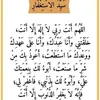 سيد الاستغفار
اللهم أنت ربي لا إله إلا أنت،
خلقتني وأنا عبدك، وأنا على عهدك
ووعدك ما استطعت، أعوذ بك من
شر ما صنعت، أبوء لك بنعمتك
علي، وأبوء لك بذنبي فاغفر لي،
فإنه لا يغفر الذنوب إلا أنت